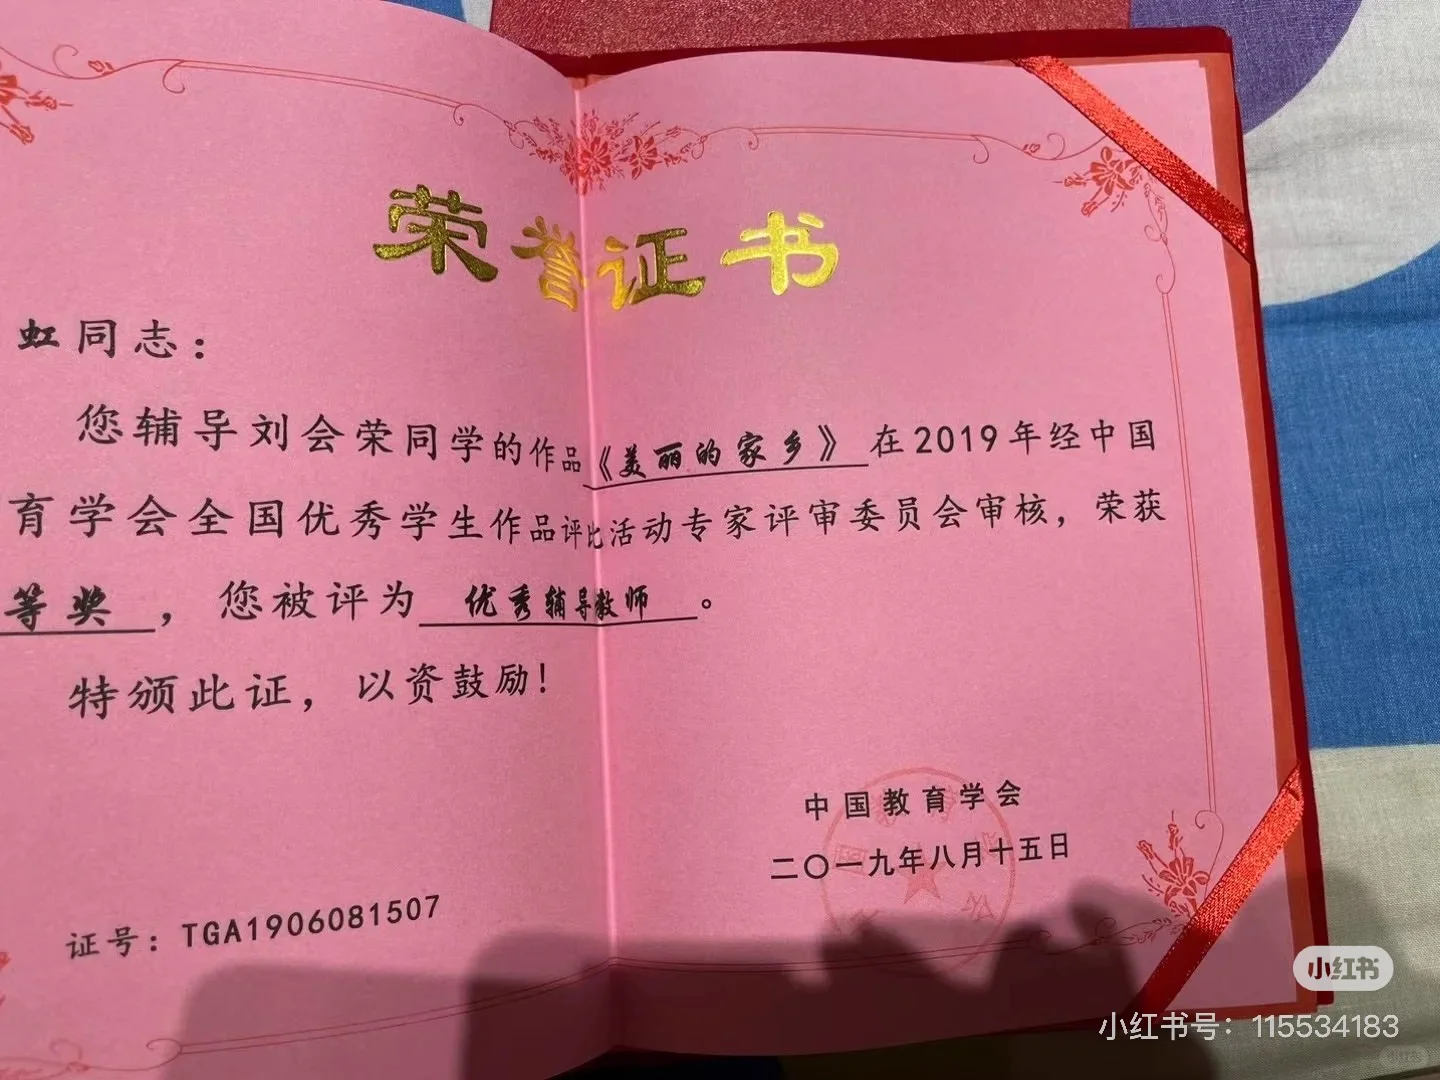 荣誉证书
虹同志：
您辅导刘会荣同学的作品《美丽的家乡》在2019年经中国
育学会全国优秀学生作品评比活动专家评审委员会审核，荣获
等奖，您被评为 优秀辅导教师 。
特颁此证，以资鼓励！
中国教育学会
二〇一九年八月十五日
证号：TGA1906081507
小红书
小红书号：115534183